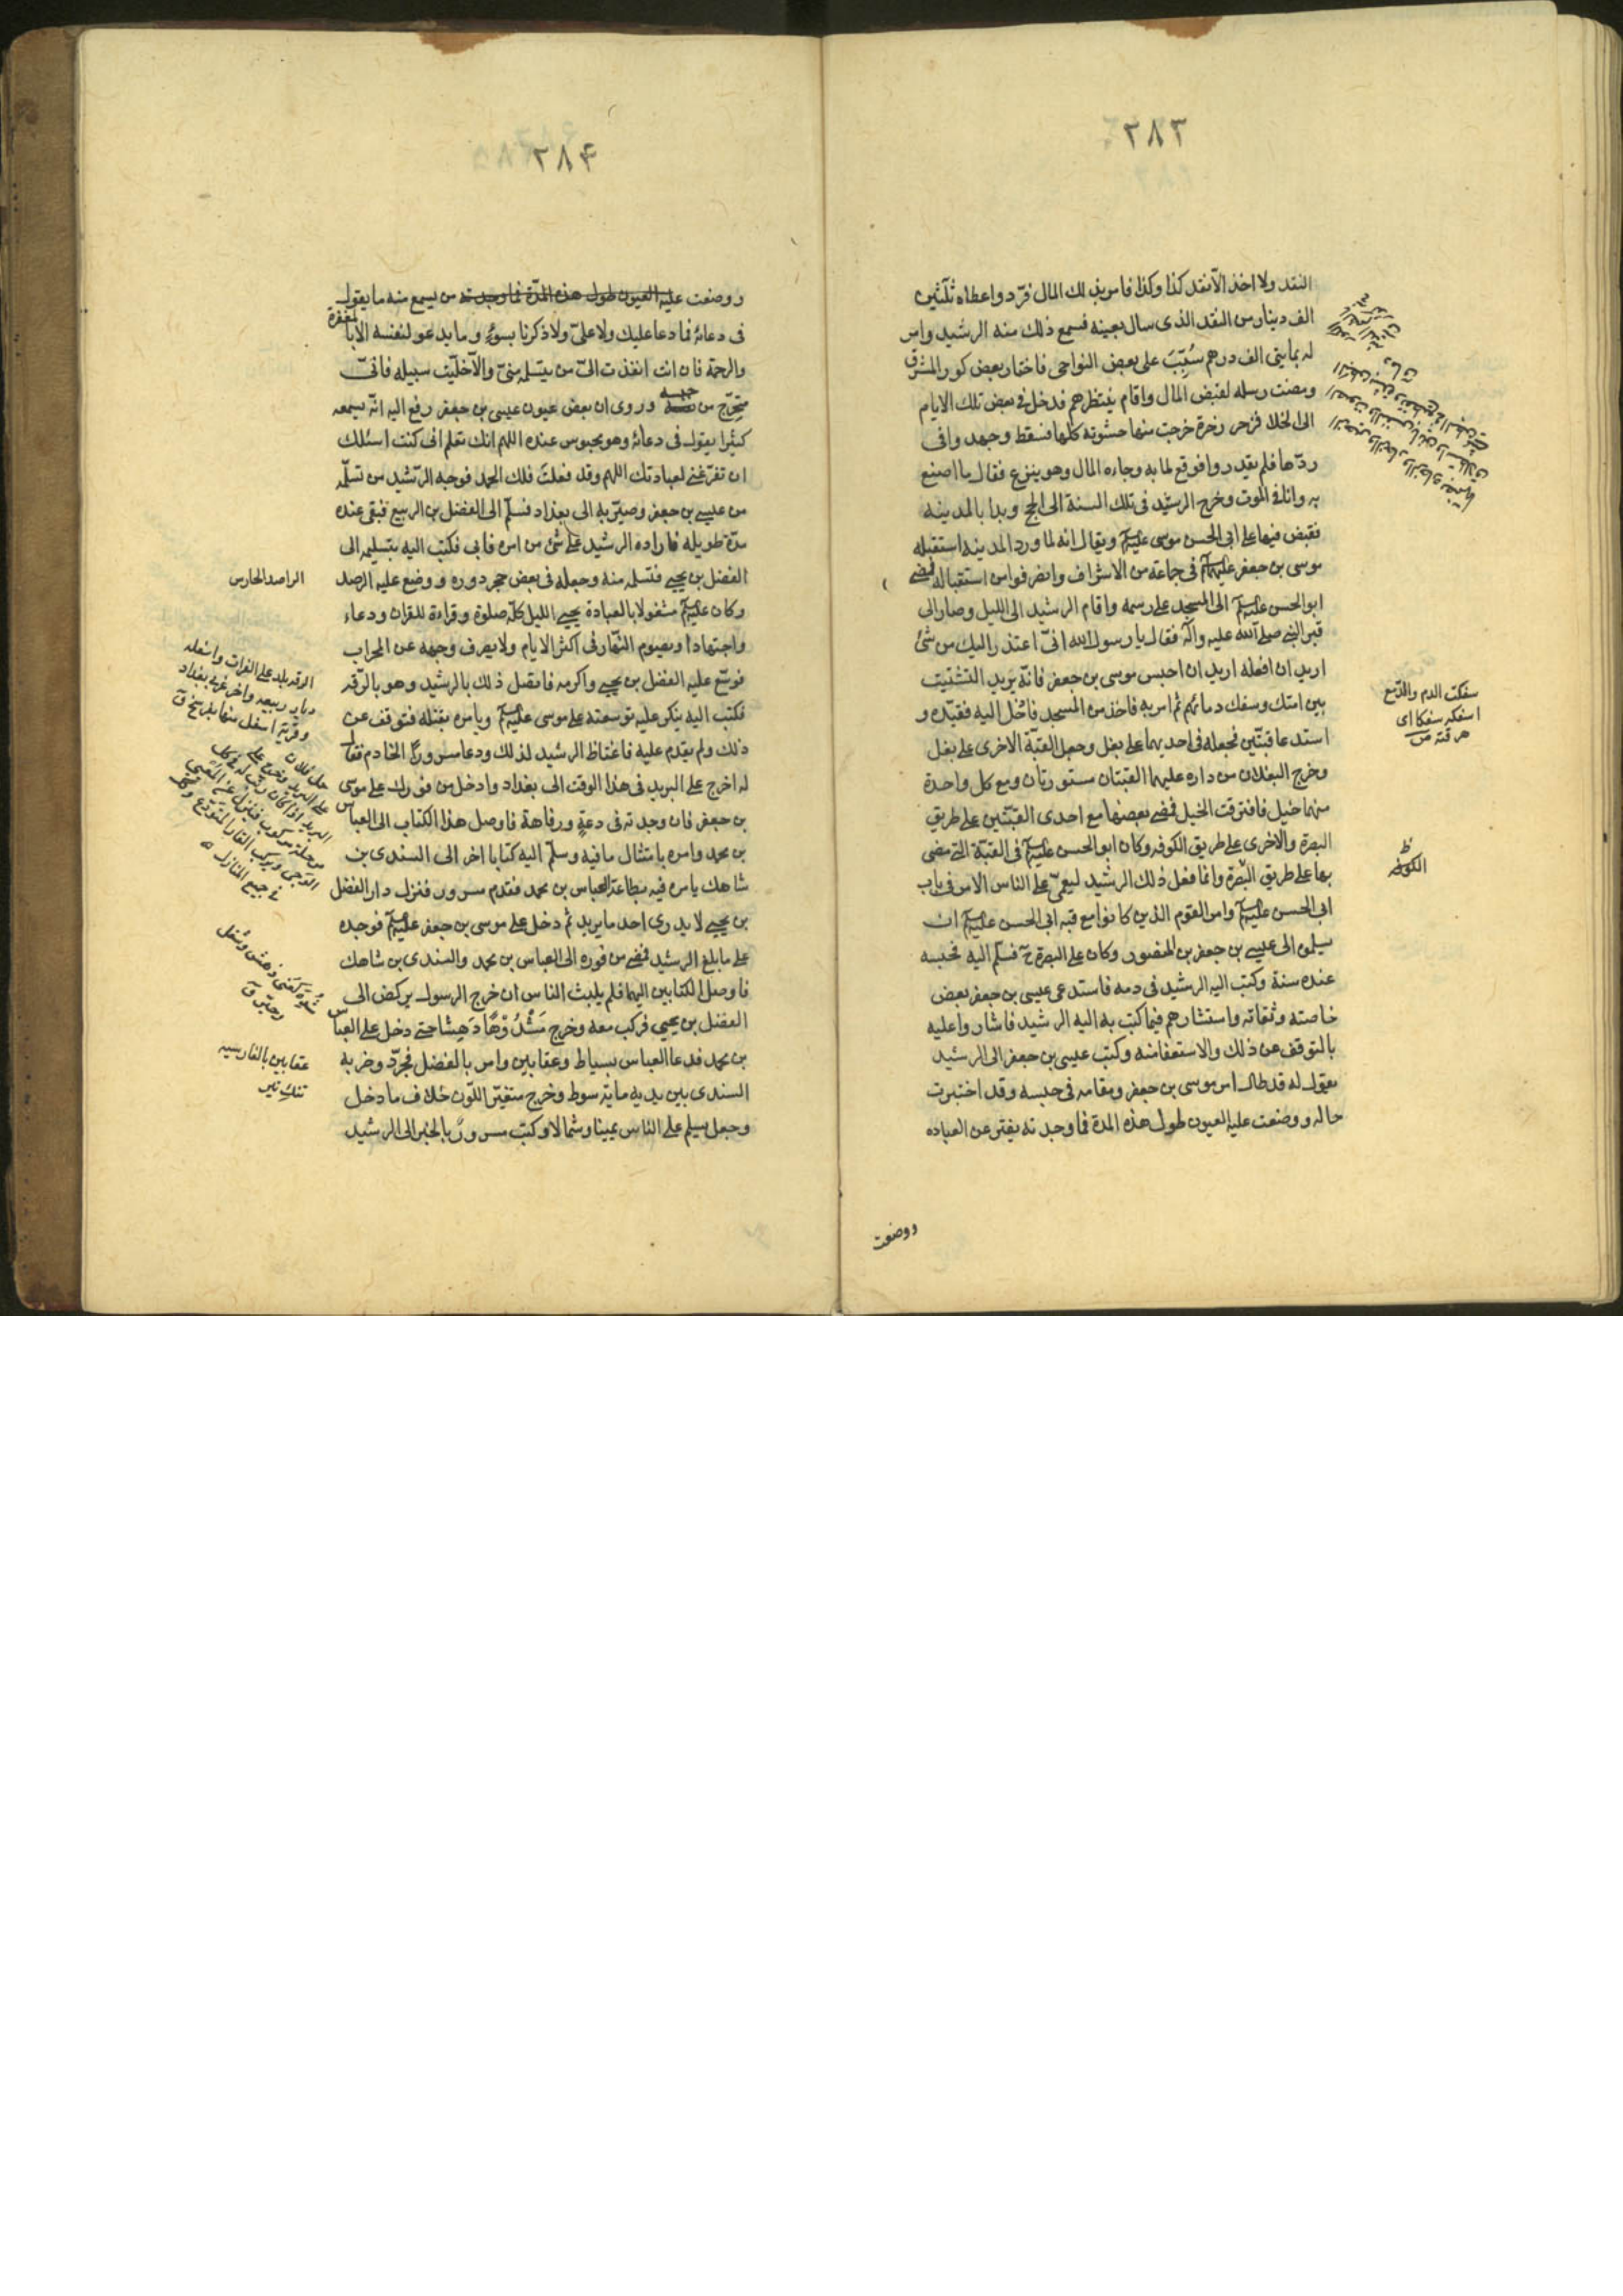 ٢٨٣
النقد ولا اخذ الّا نقد كذا وكذا فامر بذلك المال فرد واعطاه ثلثين
الف دينار من النقد الذى سال بعينه فسمع ذلك منه الرشيد وامر
له بمايتى الف درهم سُبّبَت على بعض النواحى فاختار بعض كور المشرق
ومضت رسله لقبض المال واقام ينتظرهم فدخل فى بعض تلك الايام
الى الخلا فزحر زخرة خرجت منها حشوته كلها فسقط وجهد وافى
ردّها فلم يقدروا فوقع لما به وجاءه المال وهو ينزع فقال ما اصنع
به وانا فى الموت وخرج الرشيد فى تلك السنة الى الحج وبدأ بالمدينه
فقبض فيها على ابى الحسن موسى عليه السلام ويقال انه لما ورد المدينه استقبله
موسى بن جعفر عليهما السلام فى جماعة من الاشراف وانصرفوا من استقباله فمضى
ابو الحسن عليه السلام الى المسجد على رسمه واقام الرشيد الى الليل وصار الى
قبر النبى صلى الله عليه وآله فقال يا رسول الله انّى اعتذر اليك من شئ
اريد ان افعله اريد ان احبس موسى بن جعفر فانّه يريد التشتيت
بين امتك وسفك دمائهم ثم امر به فاخذ من المسجد فادُخل اليه فقيّده و
استدعا قبتّين فجعله فى احديهما على بغل وجعل القبّة الاخرى على بغل
وخرج البغلان من داره عليهما القبّتان مستورتان ومع كل واحدة
منهما خيل فافترقت الخيل فمضى بعضها مع احدى القبّتين على طريق
البصرة والاخرى على طريق الكوفه وكان ابو الحسن عليه السلام فى القبّة التى مضى
بها على طريق البصّرة وانما فعل ذلك الرشيد ليعمىّ على الناس الامر فى باب
ابى الحسن عليه السلام وامر القوم الذين كانوا مع قبه ابى الحسن عليه السلام ان
يسلموه الى عيسى بن جعفر بن المنصور وكان على البصرة ح فسلّم اليه فحبسه
عنده سنة وكتب اليه الرشيد فى دمه فاستدعى عيسى بن جعفر بعض
خاصته وثقاته واستشارهم فيما كتب به اليه الرشيد فاشاروا عليه
بالتوقف عن ذلك والاستعفا منه وكتب عيسى بن جعفر الى الرشيد
يقول له قد طال امر موسى بن جعفر ومقامه فى حبسه وقد اختبرت
حاله ووضعت عليه العيون طول هذه المدة فما وجدته يفتر عن العباده
سفكت الدم والدّمع
اسفكه سفكا اى
هرقته ص
الكوفه ظ
ووضعت
٢٨۴
ووضعت عليه العيون طول هذه المدّة فما وجدته من يسمع منه ما يقول
فى دعائه فما دعا عليك ولا علىّ ولا ذكرنا بسوءٍ وما يدعو لنفسه الا بالمغفرة
والرحمة فان انت انفذت الىّ من يتسلمه منىّ والّا خلّيت سبيله فانىّ
متحرّج من حبسه وروى ان بعض عيون عيسى بن جعفر رفع اليه انّه يسمعه
كثيرا يقول فى دعائه وهو محبوس عنده اللهم انك تعلم انى كنت اسئلك
ان تفرّغنى لعبادتك اللهم وقد فعلت فلك الحمد فوجه الرّشيد من تسلّمه
من عيسى بن جعفر وصيّر به الى بغداد فسلّم الى الفضل بن الربيع فبقى عنده
مدّة طويله فاراده الرشيد على شئ من امره فابى فكتب اليه بتسليمه الى
الفضل بن يحيى فتسلمه منه وجعله فى بعض حجر دوره ووضع عليه الرصد
وكان عليه السلام مشغولا بالعبادة يحيى الليل كلّه صلوة وقراءة للقران ودعاء
واجتهادا ويصوم النّهار فى اكثر الايام ولا يصرف وجهه عن المحراب
فوسّع عليه الفضل بن يحيى واكرمه فاتصل ذلك بالرشيد وهو بالرّقه
فكتب اليه ينكر عليه توسعته على موسى عليه السلام ويامره بقتله فتوقف عن
ذلك ولم يقدم عليه فاغتاظ الرشيد لذلك ودعا مسرورًا الخادم فقال
له اخرج على البريد فى هذا الوقت الى بغداد وادخل من فورك على موسى
بن جعفر فان وجدته فى دعةٍ ورفاهة فاوصل هذا الكتاب الى العباس
بن محمد وامره بامتثال ما فيه وسلّم اليه كتابا اخر الى السندى بن
شاهك يامره فيه بطاعة العباس بن محمد فقدم مسرور فنزل دار الفضل
بن يحيى لا يدرى احد ما يريد ثم دخل على موسى بن جعفر عليه السلام فوجده
على ما بلغ الرشيد فمضى من فوره الى العباس بن محمد والسندى بن شاهك
فاوصل الكتابين اليهما فلم يلبث الناس ان خرج الرسول يركض الى
الفضل بن يحيى فركب معه وخرج مَشْدُوْهًا دَهِشا حتى دخل على العباس
بن محمد فدعا العباس بسياط وعقابين وامر بالفضل فجرّد وضربه
السندى بين يديه ماية سوط وخرج متغيّر اللّون خلاف ما دخل
وجعل يسلم على النّاس يمينا وشمالا وكتب مسرورٌ بالخبر الى الرشيد
الراصد الحارس
الرقه بلد على الفرات واسفله
ديار ربيعه واخر غربى بغداد
وقرية اسفل منها بفرسخ ق
شُدِهَ كعُنى دهش وشغل
وحيّر ق
عقابين بالفارسيه